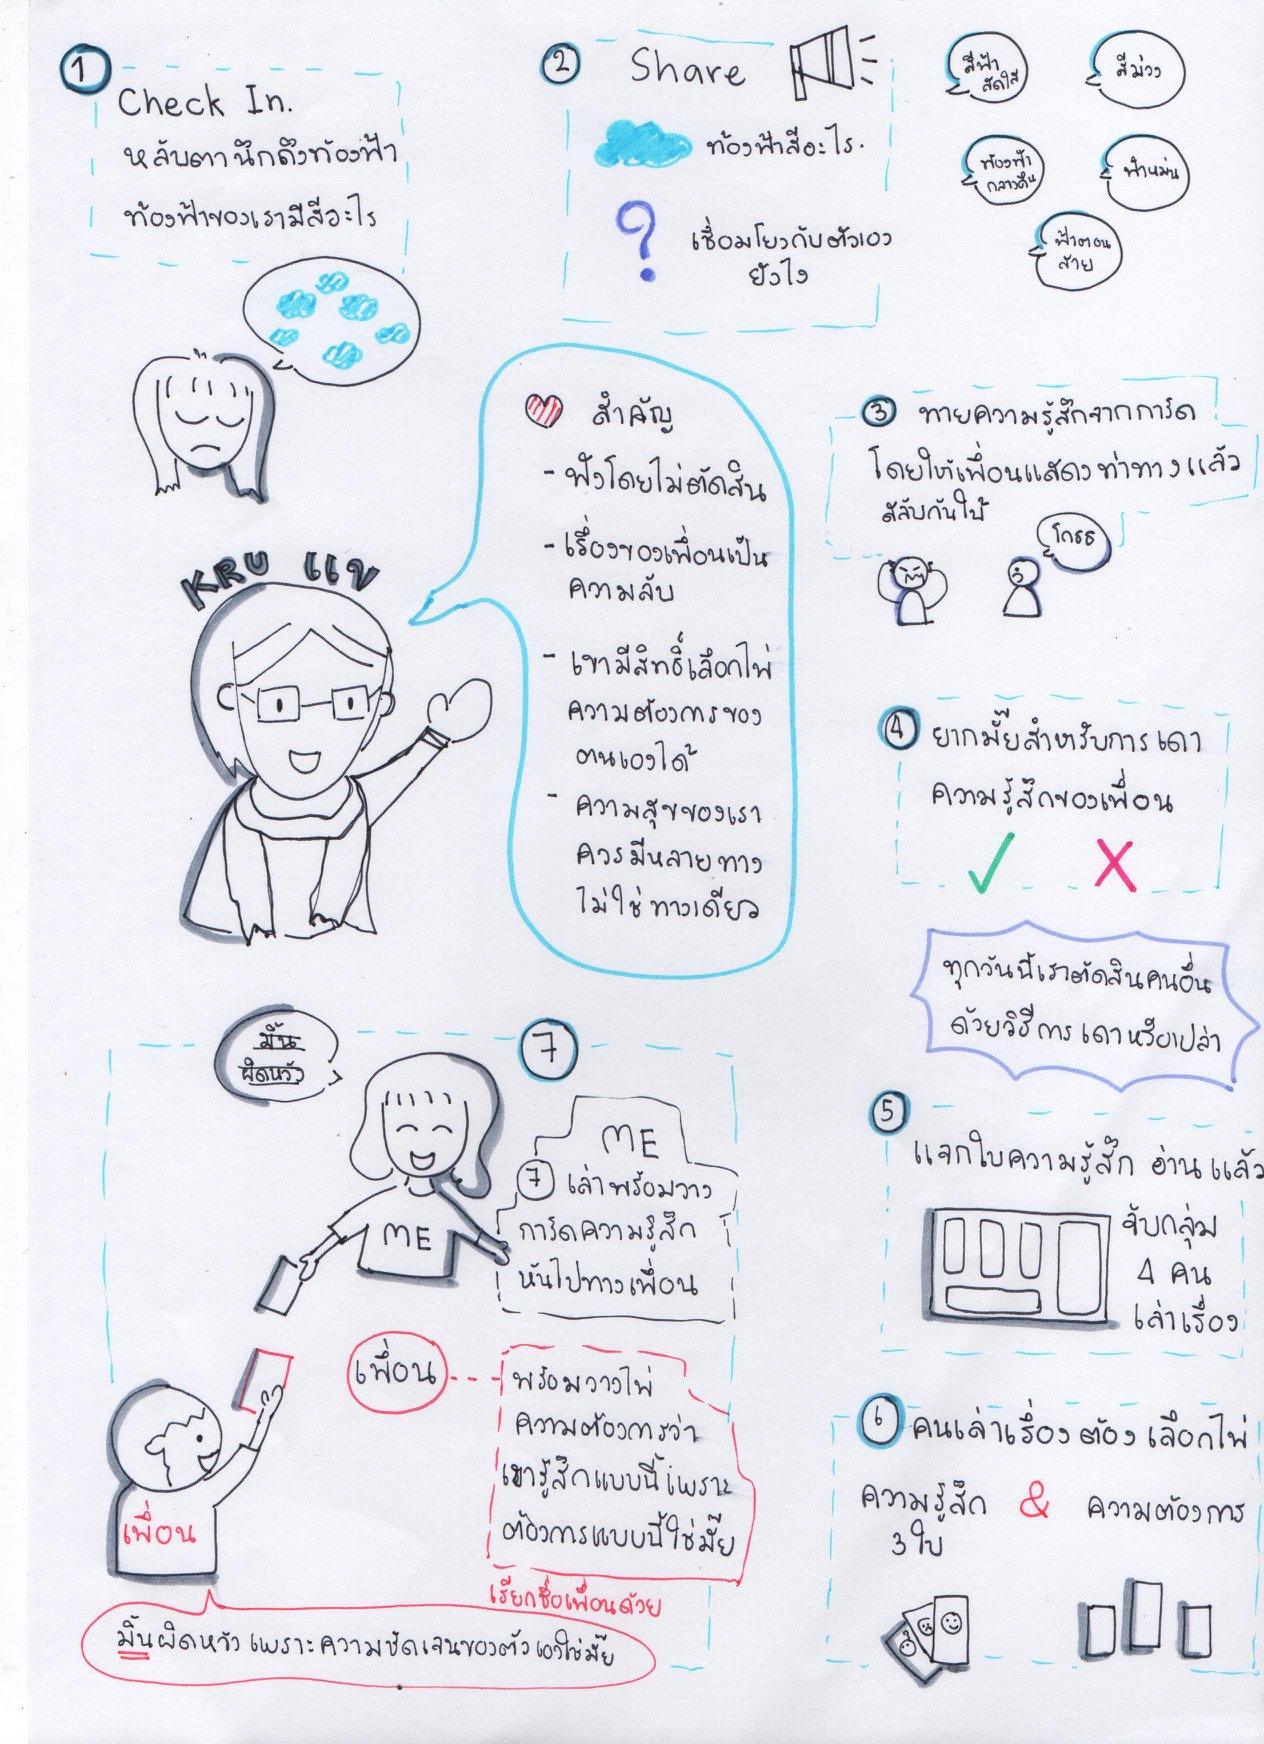 1
Check In.
หลับตานึกถึงท้องฟ้า
ท้องฟ้าของเรามีสีอะไร
2
Share
ท้องฟ้าสีอะไร.
?
เชื่อมโยงกับตัวเอง
ยังไง
สีฟ้า
สดใส
สีม่วง
ท้องฟ้า
กลางคืน
ฟ้าหม่น
ฟ้าตอน
สาย
KRU แข
สำคัญ
- ฟังโดยไม่ตัดสิน
- เรื่องของเพื่อนเป็น
ความลับ
- เขามีสิทธิ์เลือกไพ่
ความต้องการของ
ตนเองได้
- ความสุขของเรา
ควรมีหลายทาง
ไม่ใช่ทางเดียว
3 ทายความรู้สึกจากการ์ด
โดยให้เพื่อนแสดงท่าทางแล้ว
สลับกันใบ้
โกรธ
4 ยากมั๊ยสำหรับการเดา
ความรู้สึกของเพื่อน
ทุกวันนี้เราตัดสินคนอื่น
ด้วยวิธีการเดาหรือเปล่า
5
แจกใบความรู้สึก อ่านแล้ว
จับกลุ่ม
4 คน
เล่าเรื่อง
6 คนเล่าเรื่องต้องเลือกไพ่
ความรู้สึก & ความต้องการ
3ใบ
7
มิ้น
ผิดหวัง
ME
ME
7 เล่าพร้อมวาง
การ์ดความรู้สึก
หันไปทางเพื่อน
เพื่อน
พร้อมวางไพ่
ความต้องการว่า
เขารู้สึกแบบนี้เพราะ
ต้องการแบบนี้ใช่มั๊ย
เรียกชื่อเพื่อนด้วย
เพื่อน
มิ้นผิดหวังเพราะความชัดเจนของตัวเองใช่มั๊ย